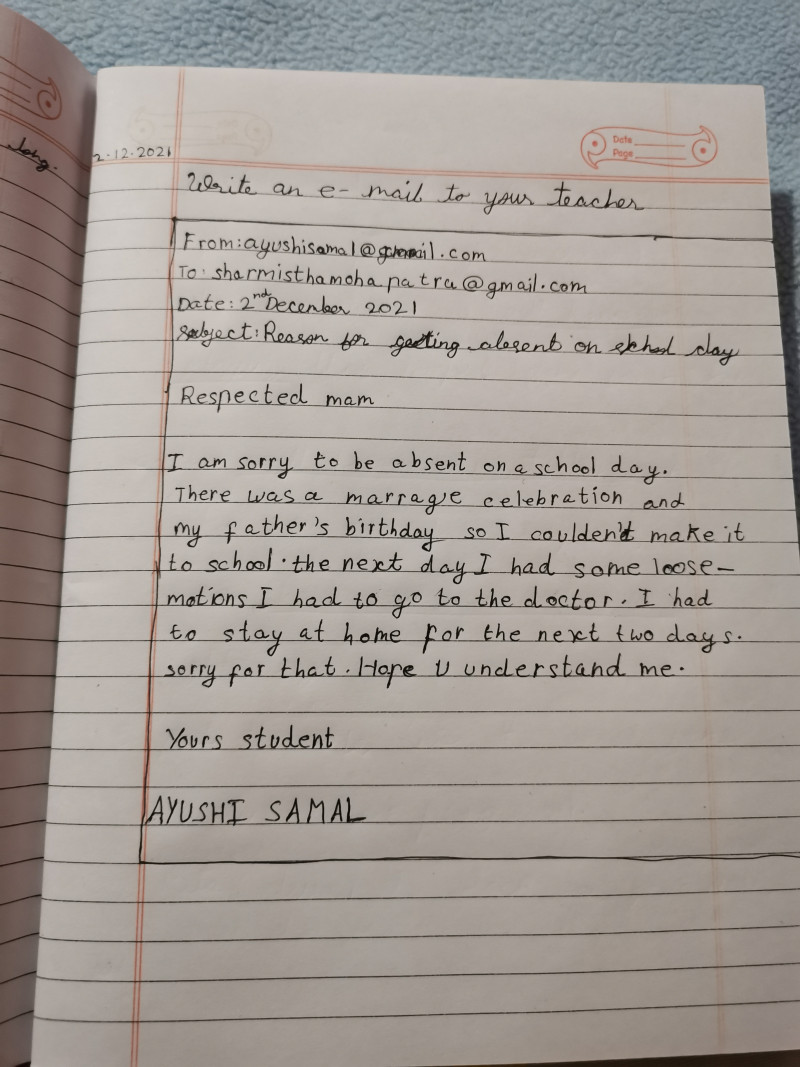 long.
2.12.2021
Date
Page
Write an e-mail to your teacher
From: ayushisamal@gmail.com
To: sharmisthamohapatra@gmail.com
Date: 2nd December 2021
Subject: Reason for getting absent on school day
Respected mam
I am sorry to be absent on a school day.
There was a marrage celebration and
my father's birthday so I coulden't make it
to school. the next day I had some loose-
motions I had to go to the doctor. I had
to stay at home for the next two days.
sorry for that. Hope U understand me.
Yours student
AYUSHI SAMAL